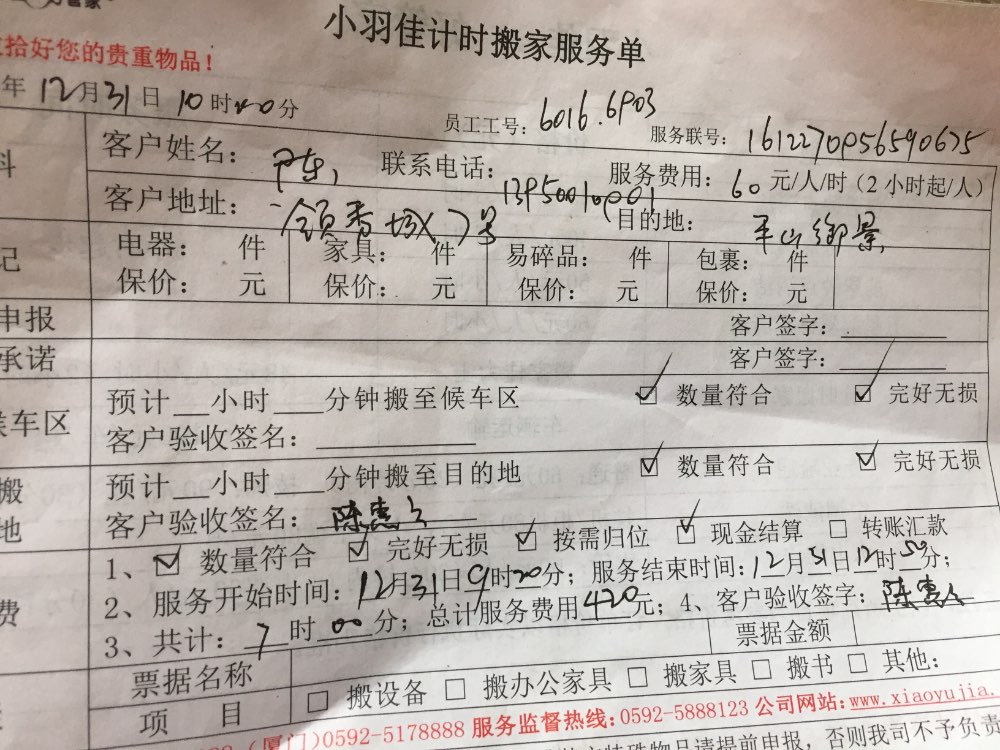 管家
小羽佳计时搬家服务单
拾好您的贵重物品！
年 12月31日 10时00分
员工工号：6016.6903 服务联号：1612270956590675
料 客户姓名： 联系电话：13950010001 服务费用：60元/人/时（2小时起/人）
客户地址：一领香城7号 目的地：平山御景
记 电器： 件 家具： 件 易碎品： 件 包裹： 件
保价： 元 保价： 元 保价： 元 保价： 元
申报 客户签字：
承诺 客户签字：
候车区 预计__小时___分钟搬至候车区 ☑ 数量符合 ☑ 完好无损
客户验收签名：
搬 预计__小时___分钟搬至目的地 ☑ 数量符合 ☑ 完好无损
地 客户验收签名：陈惠
1、☑ 数量符合 ☑ 完好无损 ☑ 按需归位 ☑ 现金结算 □ 转账汇款
2、服务开始时间：12月31日9时20分；服务结束时间：12月31日12时50分；
费 3、共计：7时00分；总计服务费用420元；4、客户验收签字：陈惠
票据名称 票据金额
项 目 □ 搬设备 □ 搬办公家具 □ 搬家具 □ 搬书 □ 其他：
（厦门）0592-5178888 服务监督热线：0592-5888123 公司网站：www.xiaoyujia.
特殊物品请提前申报，否则我司不予负责